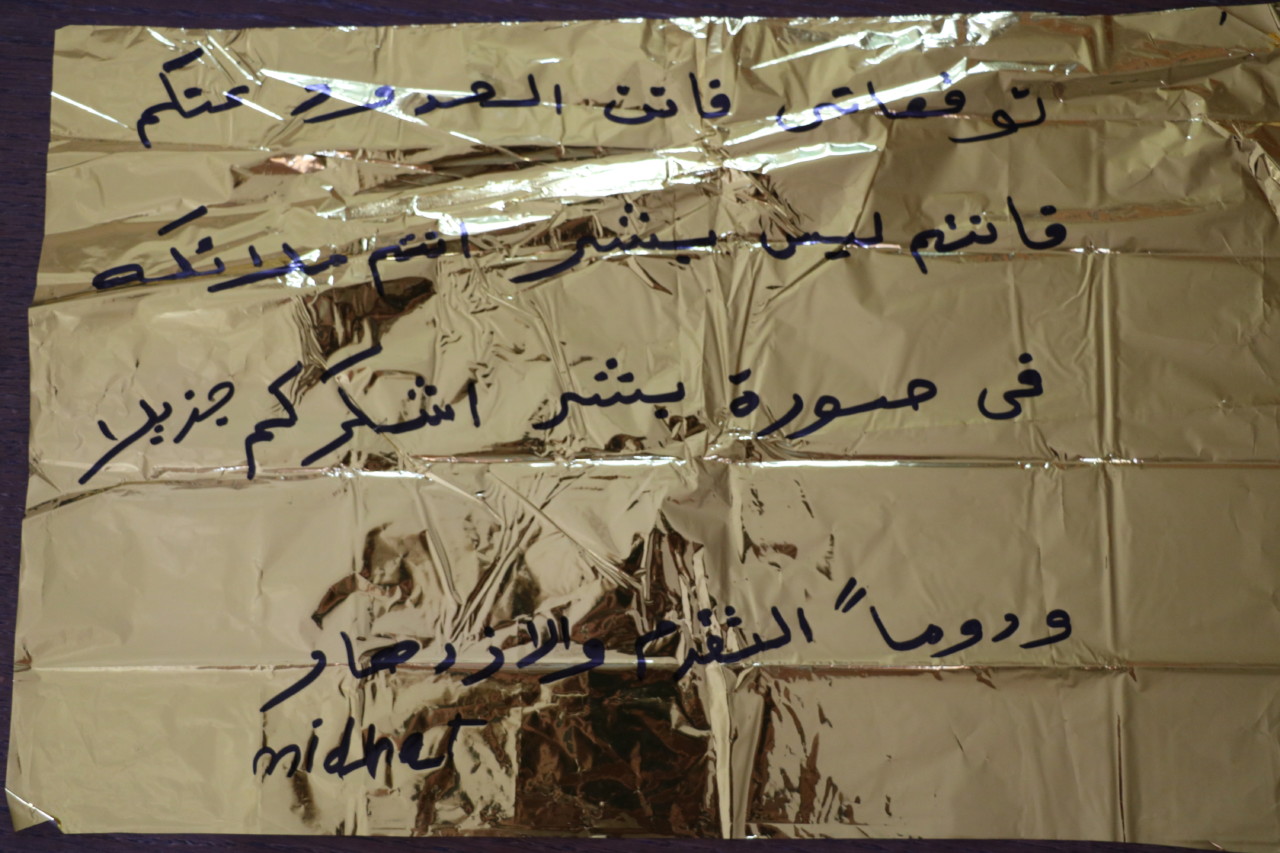 توقعاتى فاتت الحدود عنكم
فانتم ليس بشر انتم ملائكه
فى صورة بشر اشكركم جزيلا
ودوماً التقدم والازدهار
midhat